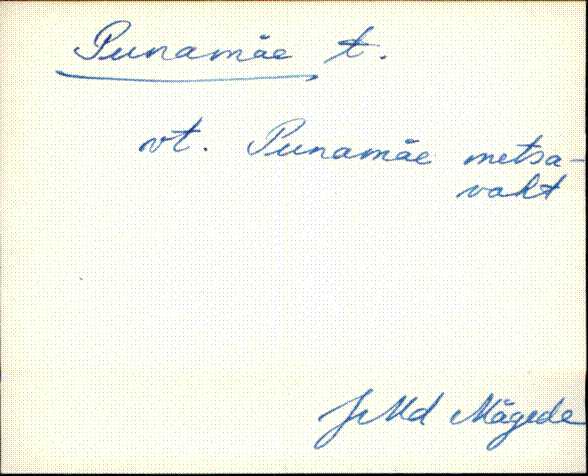 Punamäe t.
vt. Punamäe metsa-
vaht
JMd Mägede